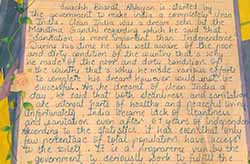 Swachh Bharat Abhiyan is started by
the government to make india a completely clean
India. Clean India was a dream seen by the
Mahatma Gandhi regarding which he said that
"Sanitation is more important than Independence
during his time he was well aware of the poor
and dirty condition of the country that's why
he made of the poor and dirty condition of
the country that's why he made various efforts
to complete his dream however could not be
successful. As he dreamt of clean India a
day, he said that both cleanliness and sanitation
are integral parts of healthy and peaceful living
Unfortunately India became lack of cleanliness
and sanitation even after years of independence
According to the statistics, it has seen that only
few percentage of total population have access
to the toilet. It is a programme run by the
government to seriously work to fulfil the